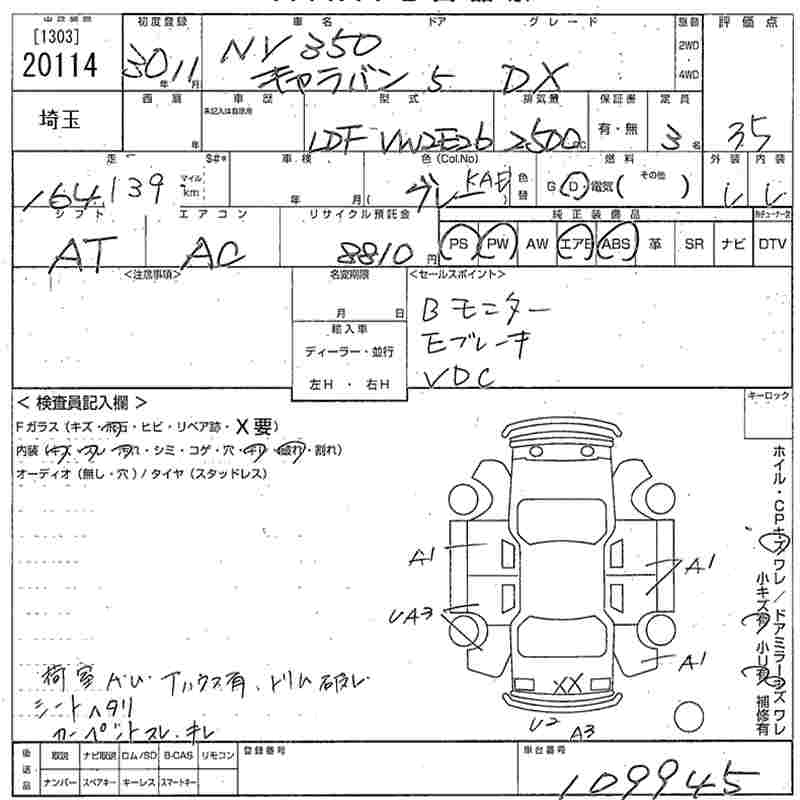 [1303]
20114
初度登録
30 11
年 月
車名 ドア グレード
NV350
キャラバン 5 DX
駆動
2WD
4WD
評価点
3.5
埼玉
西暦
年
車歴
未記入は自家用
型式
LDF VW2E26
排気量
2500cc
保証書
有・無
定員
3名
走
164,139
マイル
km
車検
年 月
色(Col.No)
グレー KAD
色替
燃料
G・D・電気( その他 )
外装 内装
シフト
AT
エアコン
AC
リサイクル預託金
8810円
純正装備品
PS PW AW エアB ABS 革 SR ナビ DTV
<注意事項>
名変期限
月 日
輸入車
ディーラー・並行
左H・右H
<セールスポイント>
Bモニター
Eブレーキ
VDC
<検査員記入欄>
Fガラス(キズ・飛石・ヒビ・リペア跡・X要)
内装(キズ・スレ・汚れ・シミ・コゲ・穴・切れ・破れ・割れ)
オーディオ(無し・穴)/タイヤ(スタッドレス)
キーロック
ホイル・CPキズワレ/ドアミラーキズワレ
小キズ有 小凹有 補修有
A1
A1
UA3
A1
XX
U2
A3
シートヘタリ
カーペントスレ・キレ
後送品
取説 ナビ取説 ロム/SD B-CAS リモコン
ナンバー スペアキー キーレス スマートキー
登録番号
車台番号
109945